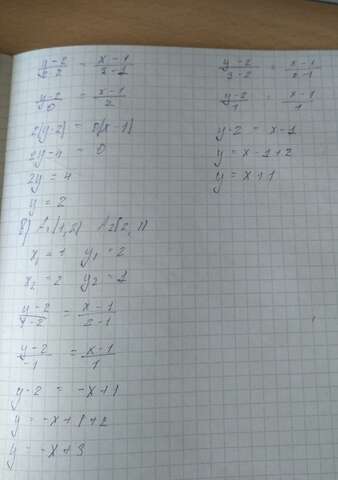 y-2/2-2 = x-1/3-1
y-2/0 = x-1/2
2(y-2) = 0(x-1)
2y-4 = 0
2y = 4
y = 2
8) A₁(1,2) A₂(2,1)
x₁ = 1 y₁ = 2
x₂ = 2 y₂ = 1
y-2/1-2 = x-1/2-1
y-2/-1 = x-1/1
y-2 = -x+1
y = -x+1+2
y = -x+3
y-2/3-2 = x-1/2-1
y-2/1 = x-1/1
y-2 = x-1
y = x-1+2
y = x+1